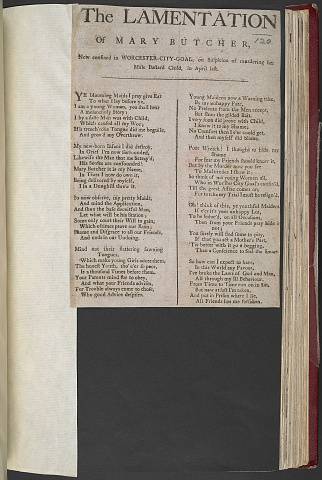 The LAMENTATION
Of MARY BUTCHER,
120
Now confined in WORCESTER-CITY-GOAL, on Suspicion of murdering her
Male Bastard Child, in April last.
YE blooming Maids I pray give Ear
To what I lay before ye,
I am a young Woman, you shall hear
A melancholy Story:
I by a base Man was with Child,
Which caused all my Woe;
His treach'rous Tongue did me beguile,
And prov'd my Overthrow.
My new-born Infant I did destroy,
In Grief I'm now surrounded,
Likewise the Man that me betray'd,
His Senses are confounded:
Mary Butcher it is my Name,
In Tears I now do own it,
Being delivered by myself,
I in a Dunghill threw it.
So now observe, my pretty Maids,
And mind the Application,
And shun the base deceitful Men,
Let what will be his Station;
Some only court their Will to gain,
Which oftimes prove our Ruin;
Shame and Disgrace to all our Friends,
And ends in our Undoing.
Mind not their flattering fawning
Tongues,
Which make young Girls
The honest Youth, tho' e'er so poor,
Is a thousand Times before them.
Your Parents mind for to obey,
And what your Friends advise,
For Trouble always come to those,
Who good Advice despise.
Young Maidens now a Warning take,
By my unhappy Fate,
No Pleasure from the Men accept,
But shun the gilded Bait.
Every Joys did prove with Child,
I know it to my Shame;
No Comfort then he'd get,
And then myself did blame.
Poor Wretch! I thought to hide my
Shame,
For fear my Friends should know it,
But by the Murder now you see
To Malvern I it;
So think of me young Women all,
Who to Wor'ster Goal committed,
Till the great Assize comes on,
For to take my Trial I must be try'd.
Oh! think of this, ye youthful Maidens
all
you unhappy Lot,
To be honest, on all Occasions,
Then from your Friends pray hide it
not;
You surely will find some to pity,
If that you act a Mother's Part,
'Tis better with it go a begging,
Than a Conscience to feel the Smart.
So how can I expect to have,
In this World any Favour,
I've broke the Laws of God and Man,
All through my ill Behaviour.
From Time to Time run on in Sin,
But now at last I'm taken,
And put in Prison where I lie,
All Friends has me forsaken.